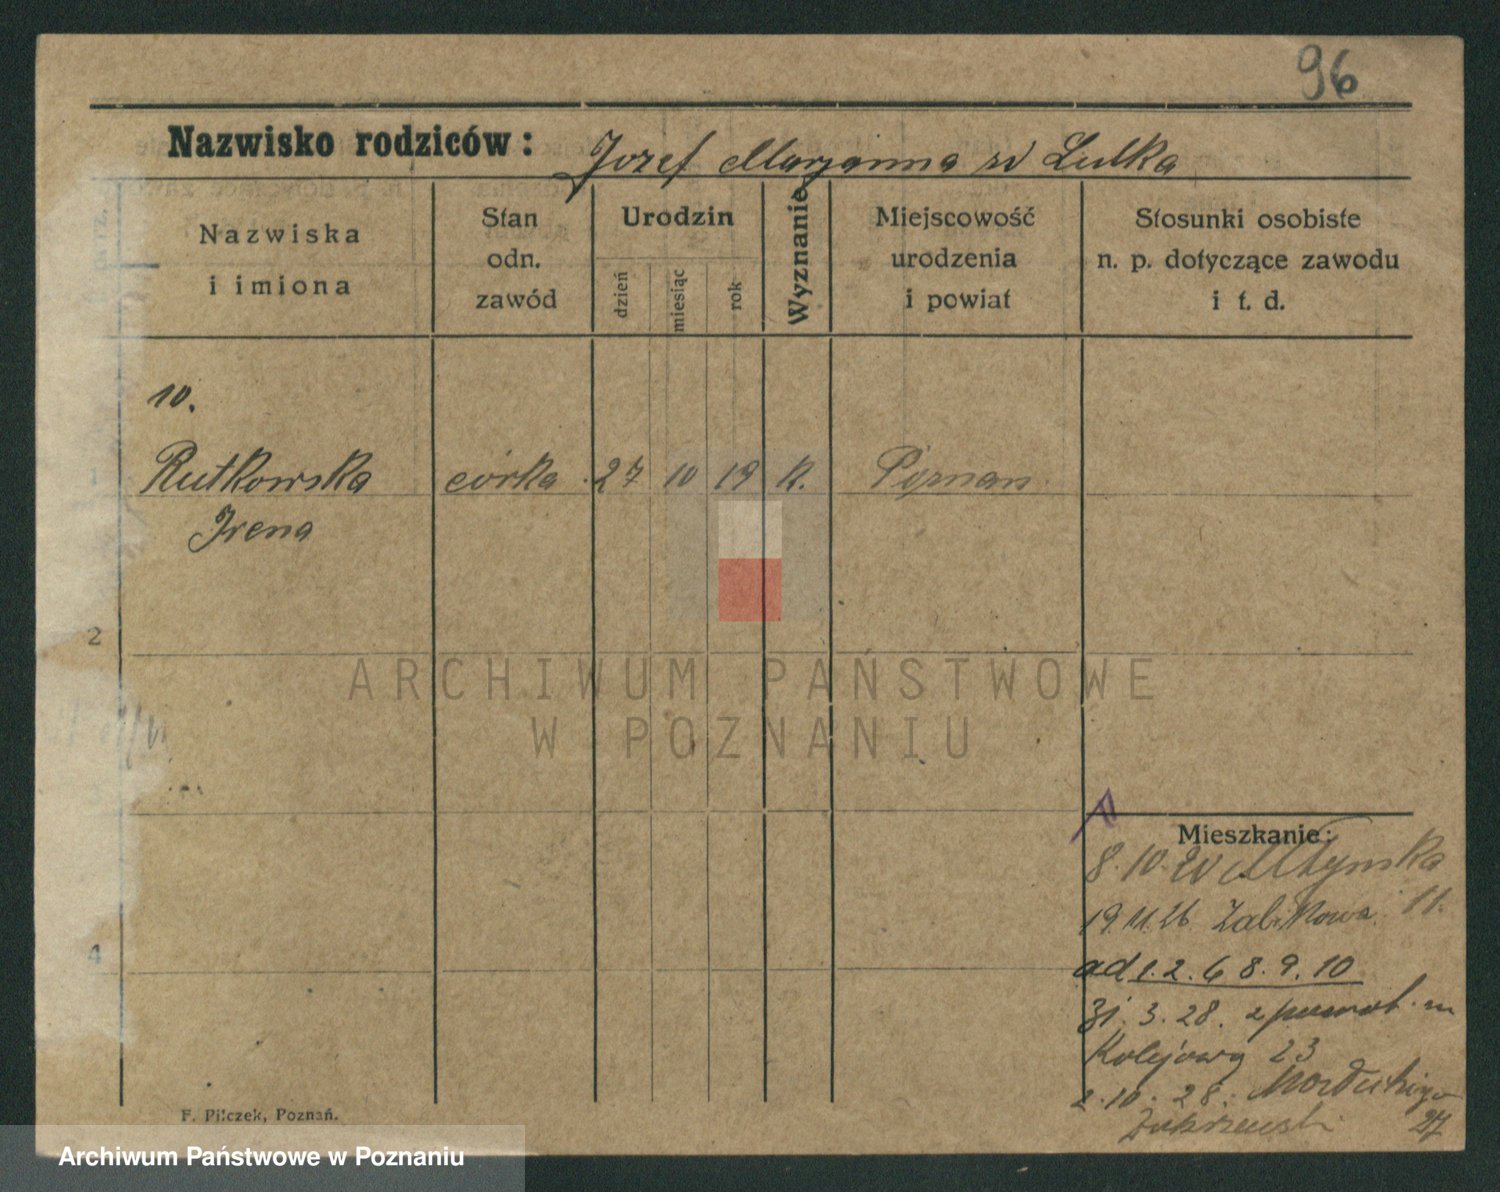 96
Nazwisko rodziców: Jozef Maryanna zd Lulka
Nazwiska i imiona
Stan odn. zawód
Urodzin
dzień
miesiąc
rok
Wyznanie
Miejscowość urodzenia i powiat
Stosunki osobiste n. p. dotyczące zawodu i t. d.
10.
Rutkowska córka 27 10 19 k. Poznań
Irena
2
4
ARCHIWUM PAŃSTWOWE
W POZNANIU
Mieszkanie:
8.10.20 Młynska
11.
19.11.26 Żabikowa
ad 1.2.6 8.9.10
31.3.28. z
Kolejową 23
2.10.28.
27
F. Pilczek, Poznań.
Archiwum Państwowe w Poznaniu